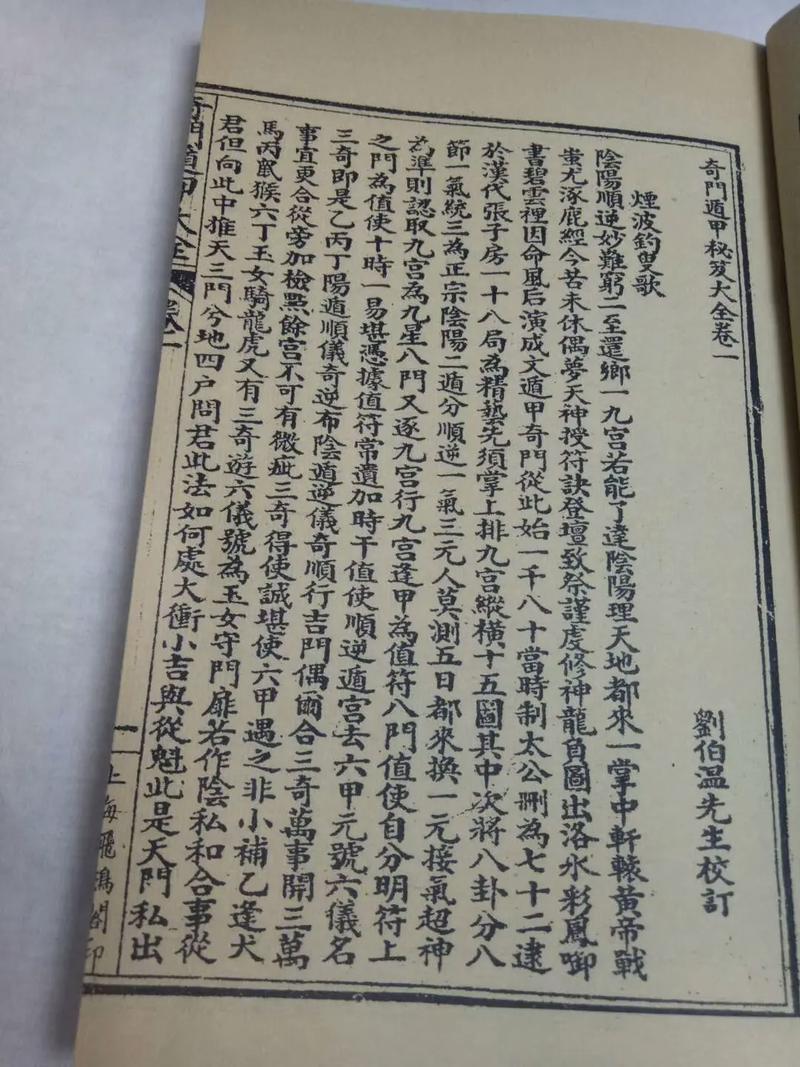 奇門遁甲秘笈大全卷一
劉伯温先生校訂
煙波釣叟歌
陰陽順逆妙難窮二至還鄉一九宮若能了達陰陽理天地都來一掌中軒轅黃帝戰
蚩尤涿鹿經今苦未休偶夢天神授符訣登壇致祭謹虔修神龍負圖出洛水彩鳳啣
書碧雲裡因命風后演成文遁甲奇門從此始一千八十當時制太公刪為七十二逮
於漢代張子房一十八局為精藝先須掌上排九宮縱橫十五圖其中次將八卦分八
節一氣統三為正宗陰陽二遁分順逆一氣三元人莫測五日都來換一元接氣超神
為準則認取九宮為九星八門又逐九宮行九宮逢甲為值符八門值使自分明符上
之門為值使十時一易堪憑據值符常遺加時干值使順逆遁宮去六甲元號六儀名
三奇即是乙丙丁陽遁順儀奇逆布陰遁逆儀奇順行吉門偶爾合三奇萬事開三萬
事宜更合從旁加檢點餘宮不可有微疵三奇得使誠堪使六甲遇之非小補乙逢犬
馬丙鼠猴六丁玉女騎龍虎又有三奇遊六儀號為玉女守門扉若作陰私和合事從
君但向此中推天三門兮地四户問君此法如何處太衝小吉與從魁此是天門私出
奇門遁甲大全
卷一
一
上海飛鴻閣印